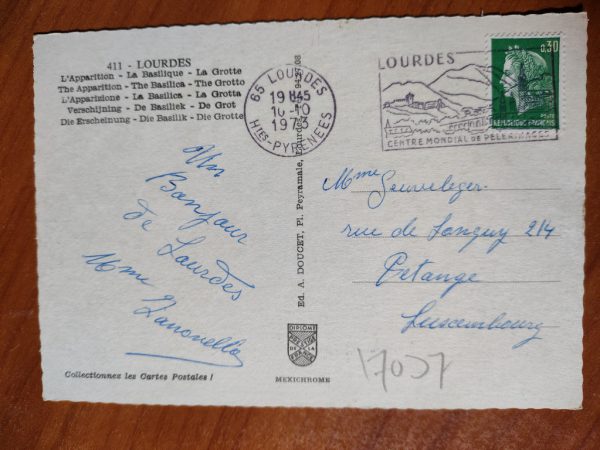 411 - LOURDES
L'Apparition - La Basilique - La Grotte
The Apparition - The Basilica - The Grotto
L'Apparizione - La Basilica - La Grotta
Verschijning - De Basiliek - De Grot
Die Erscheinung - Die Basilik - Die Grotte
65 LOURDES
19H45
10-10
HTES-PYRENEES
LOURDES
CENTRE MONDIAL DE PELERINAGES
0,30
REPUBLIQUE FRANCAISE
Un
Bonjour
de Lourdes
Mme Zanonello
Ed. A. DOUCET, Pl. Peyramale, Lourdes
Mme Sauveleger.
rue de Longwy 214
Pétange
Luxembourg
17057
DIPLOME
PRESTIGE
DE LA
FRANCE
MEXICHROME
Collectionnez les Cartes Postales !